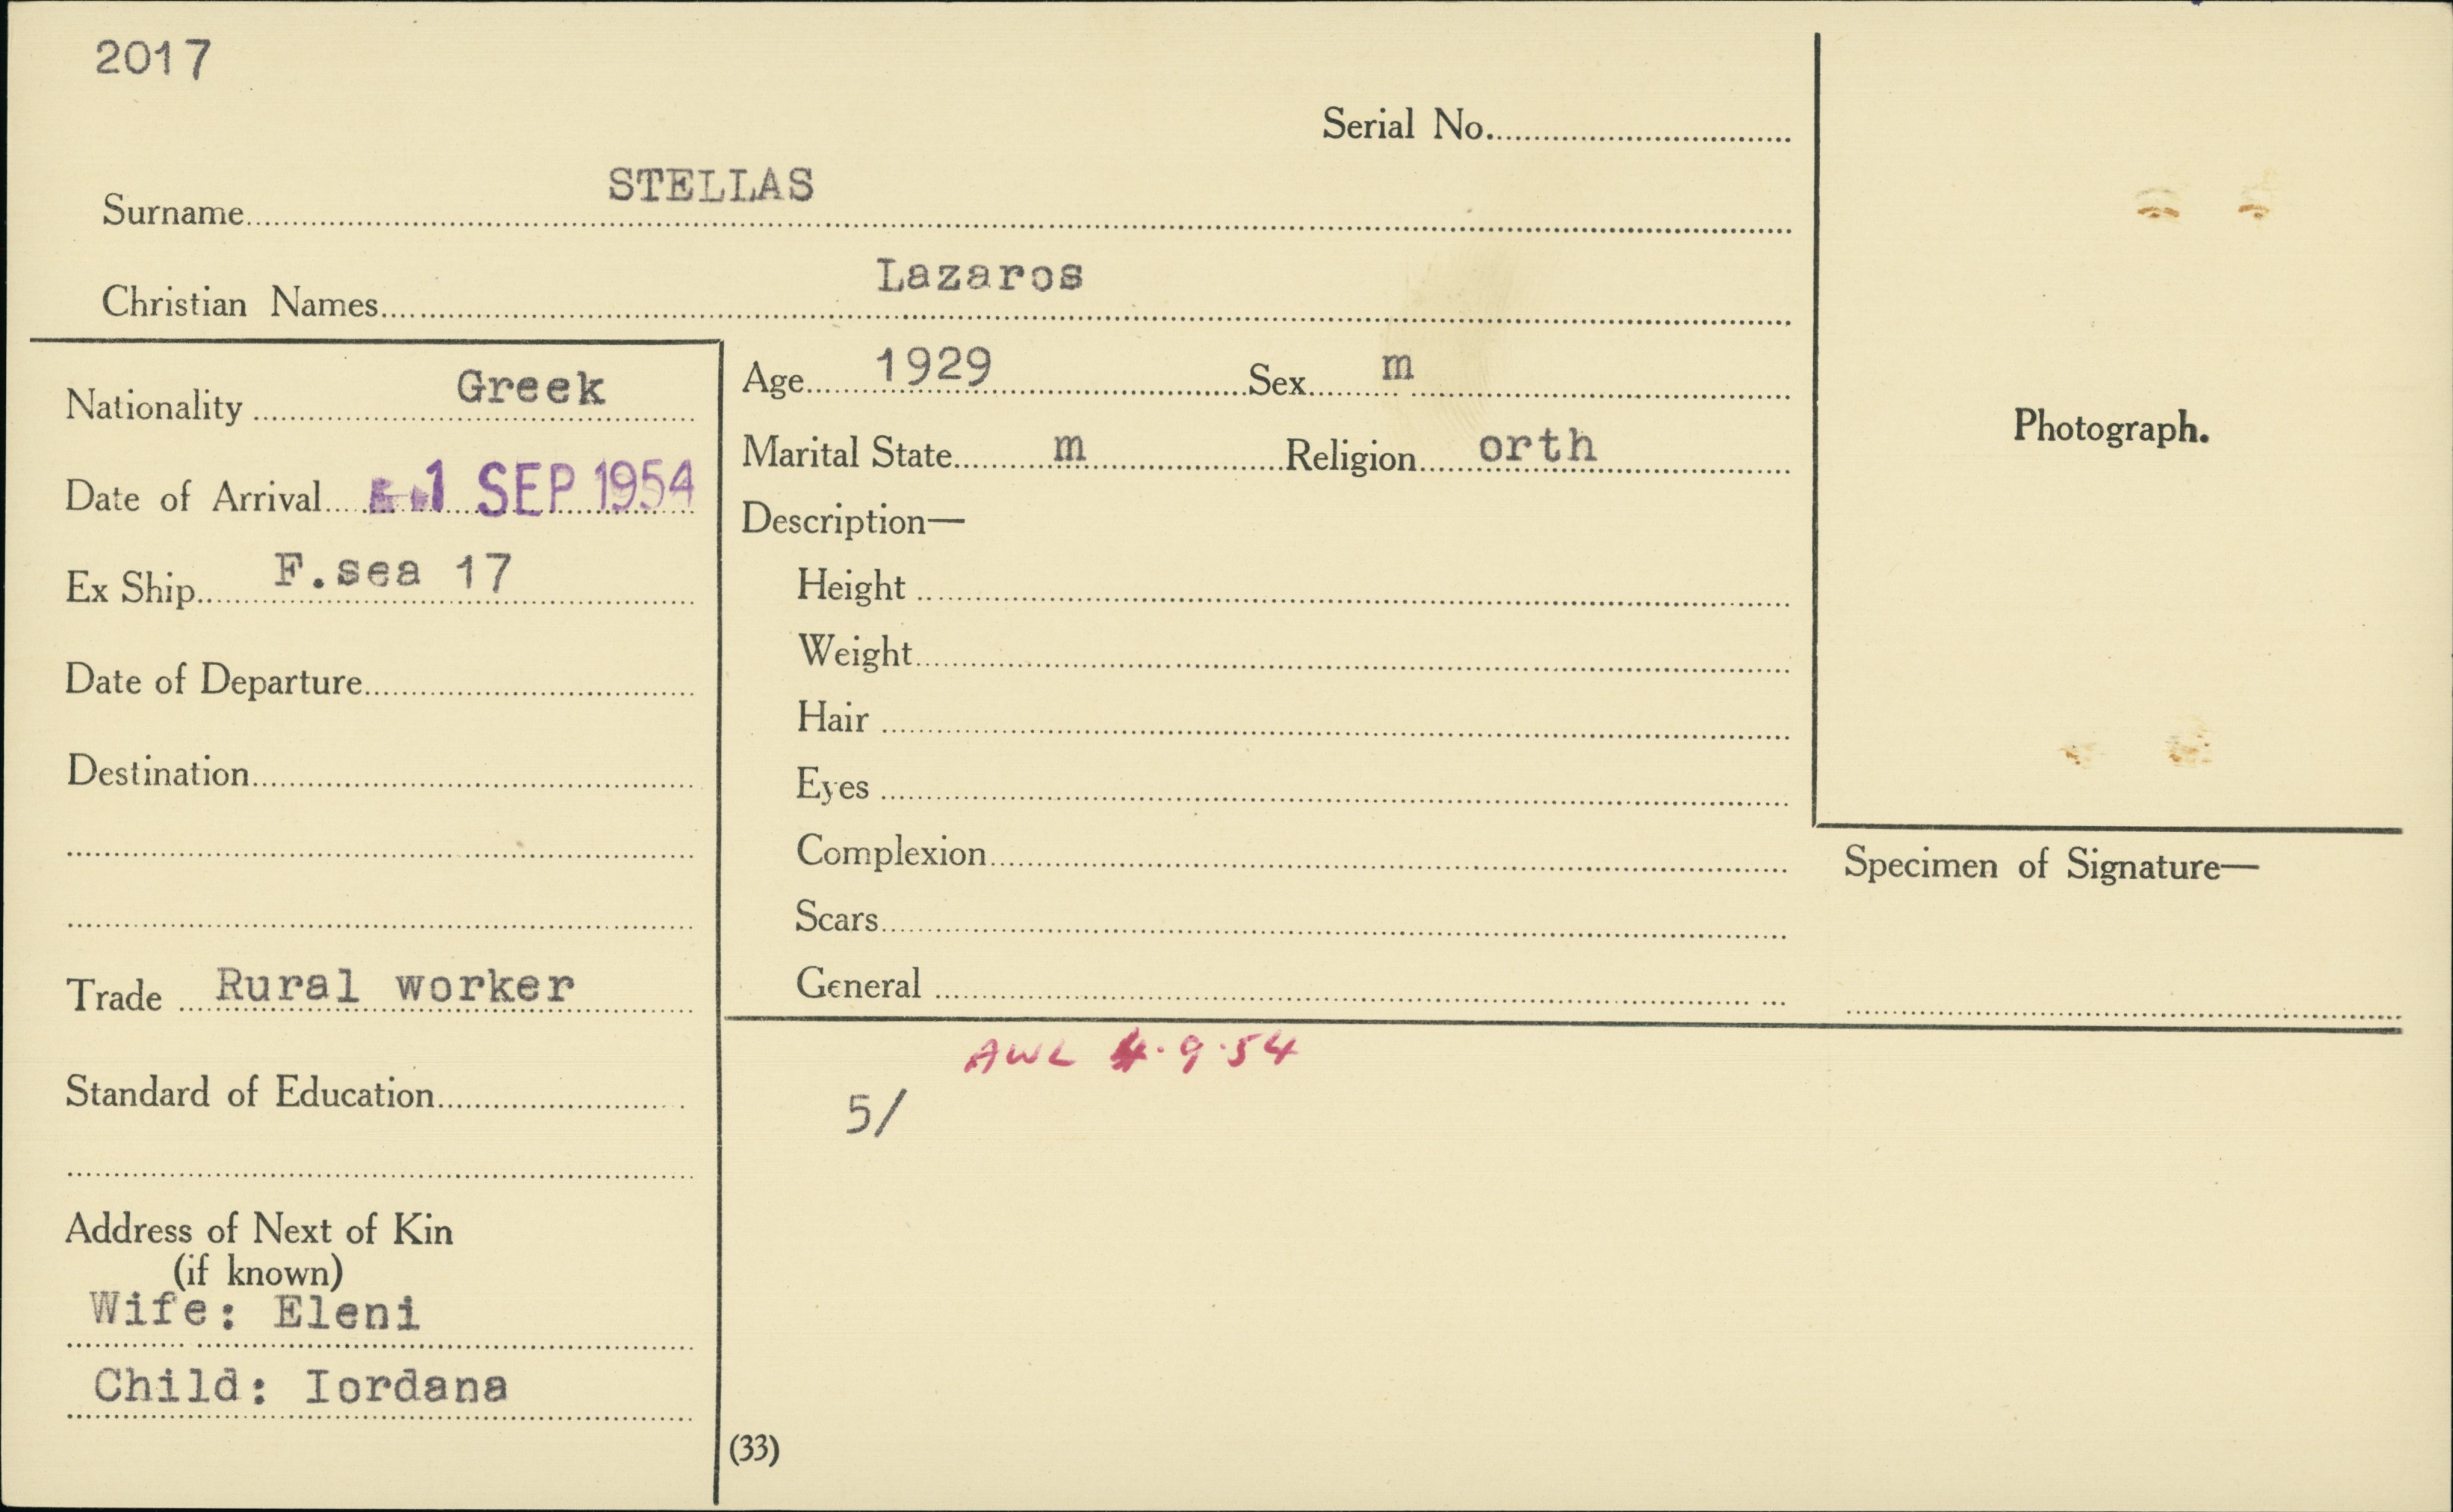 2017
Serial No.
Surname STELLAS
Christian Names Lazaros
Nationality Greek
Date of Arrival 1 SEP 1954
Ex Ship F.sea 17
Date of Departure
Destination
Trade Rural worker
Standard of Education
Address of Next of Kin
(if known)
Wife: Eleni
Child: Iordana
Age 1929 Sex m
Marital State m Religion orth
Description—
Height
Weight
Hair
Eyes
Complexion
Scars
General
Photograph.
Specimen of Signature—
AWL 4.9.54
5/
(33)